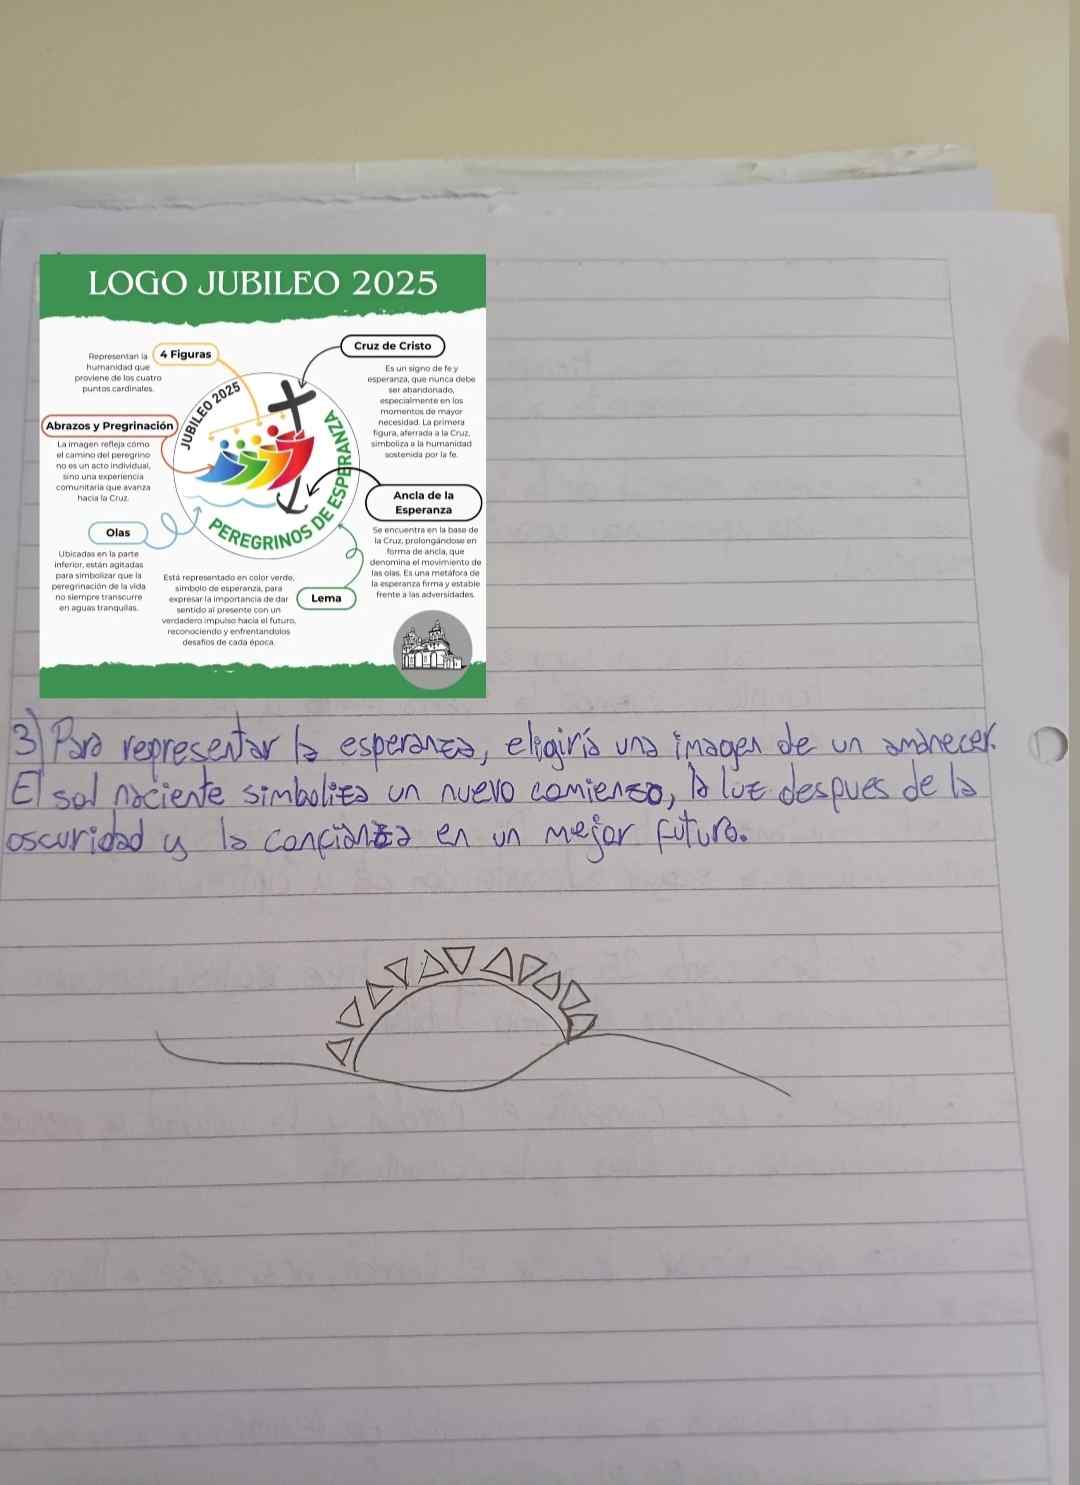 LOGO JUBILEO 2025
4 Figuras
Representan la
humanidad que
proviene de los cuatro
puntos cardinales.
Cruz de Cristo
Es un signo de fe y
esperanza, que nunca debe
ser abandonado,
especialmente en los
momentos de mayor
necesidad. La primera
figura, aferrada a la Cruz,
simboliza a la humanidad
sostenida por la fe.
Abrazos y Pregrinación
La imagen refleja cómo
el camino del peregrino
no es un acto individual,
sino una experiencia
comunitaria que avanza
hacia la Cruz.
JUBILEO 2025
PEREGRINOS DE ESPERANZA
Ancla de la
Esperanza
Se encuentra en la base de
la Cruz, prolongándose en
forma de ancla, que
denomina el movimiento de
las olas. Es una metáfora de
la esperanza firma y estable
frente a las adversidades.
Olas
Ubicadas en la parte
inferior, están agitadas
para simbolizar que la
peregrinación de la vida
no siempre transcurre
en aguas tranquilas.
Lema
Está representado en color verde,
símbolo de esperanza, para
expresar la importancia de dar
sentido al presente con un
verdadero impulso hacia el futuro,
reconociendo y enfrentandolos
desafíos de cada época.
3) Para representar la esperanza, eligiría una imagen de un amanecer.
El sol naciente simboliza un nuevo comienzo, la luz despues de la
oscuridad y la confianza en un mejor futuro.